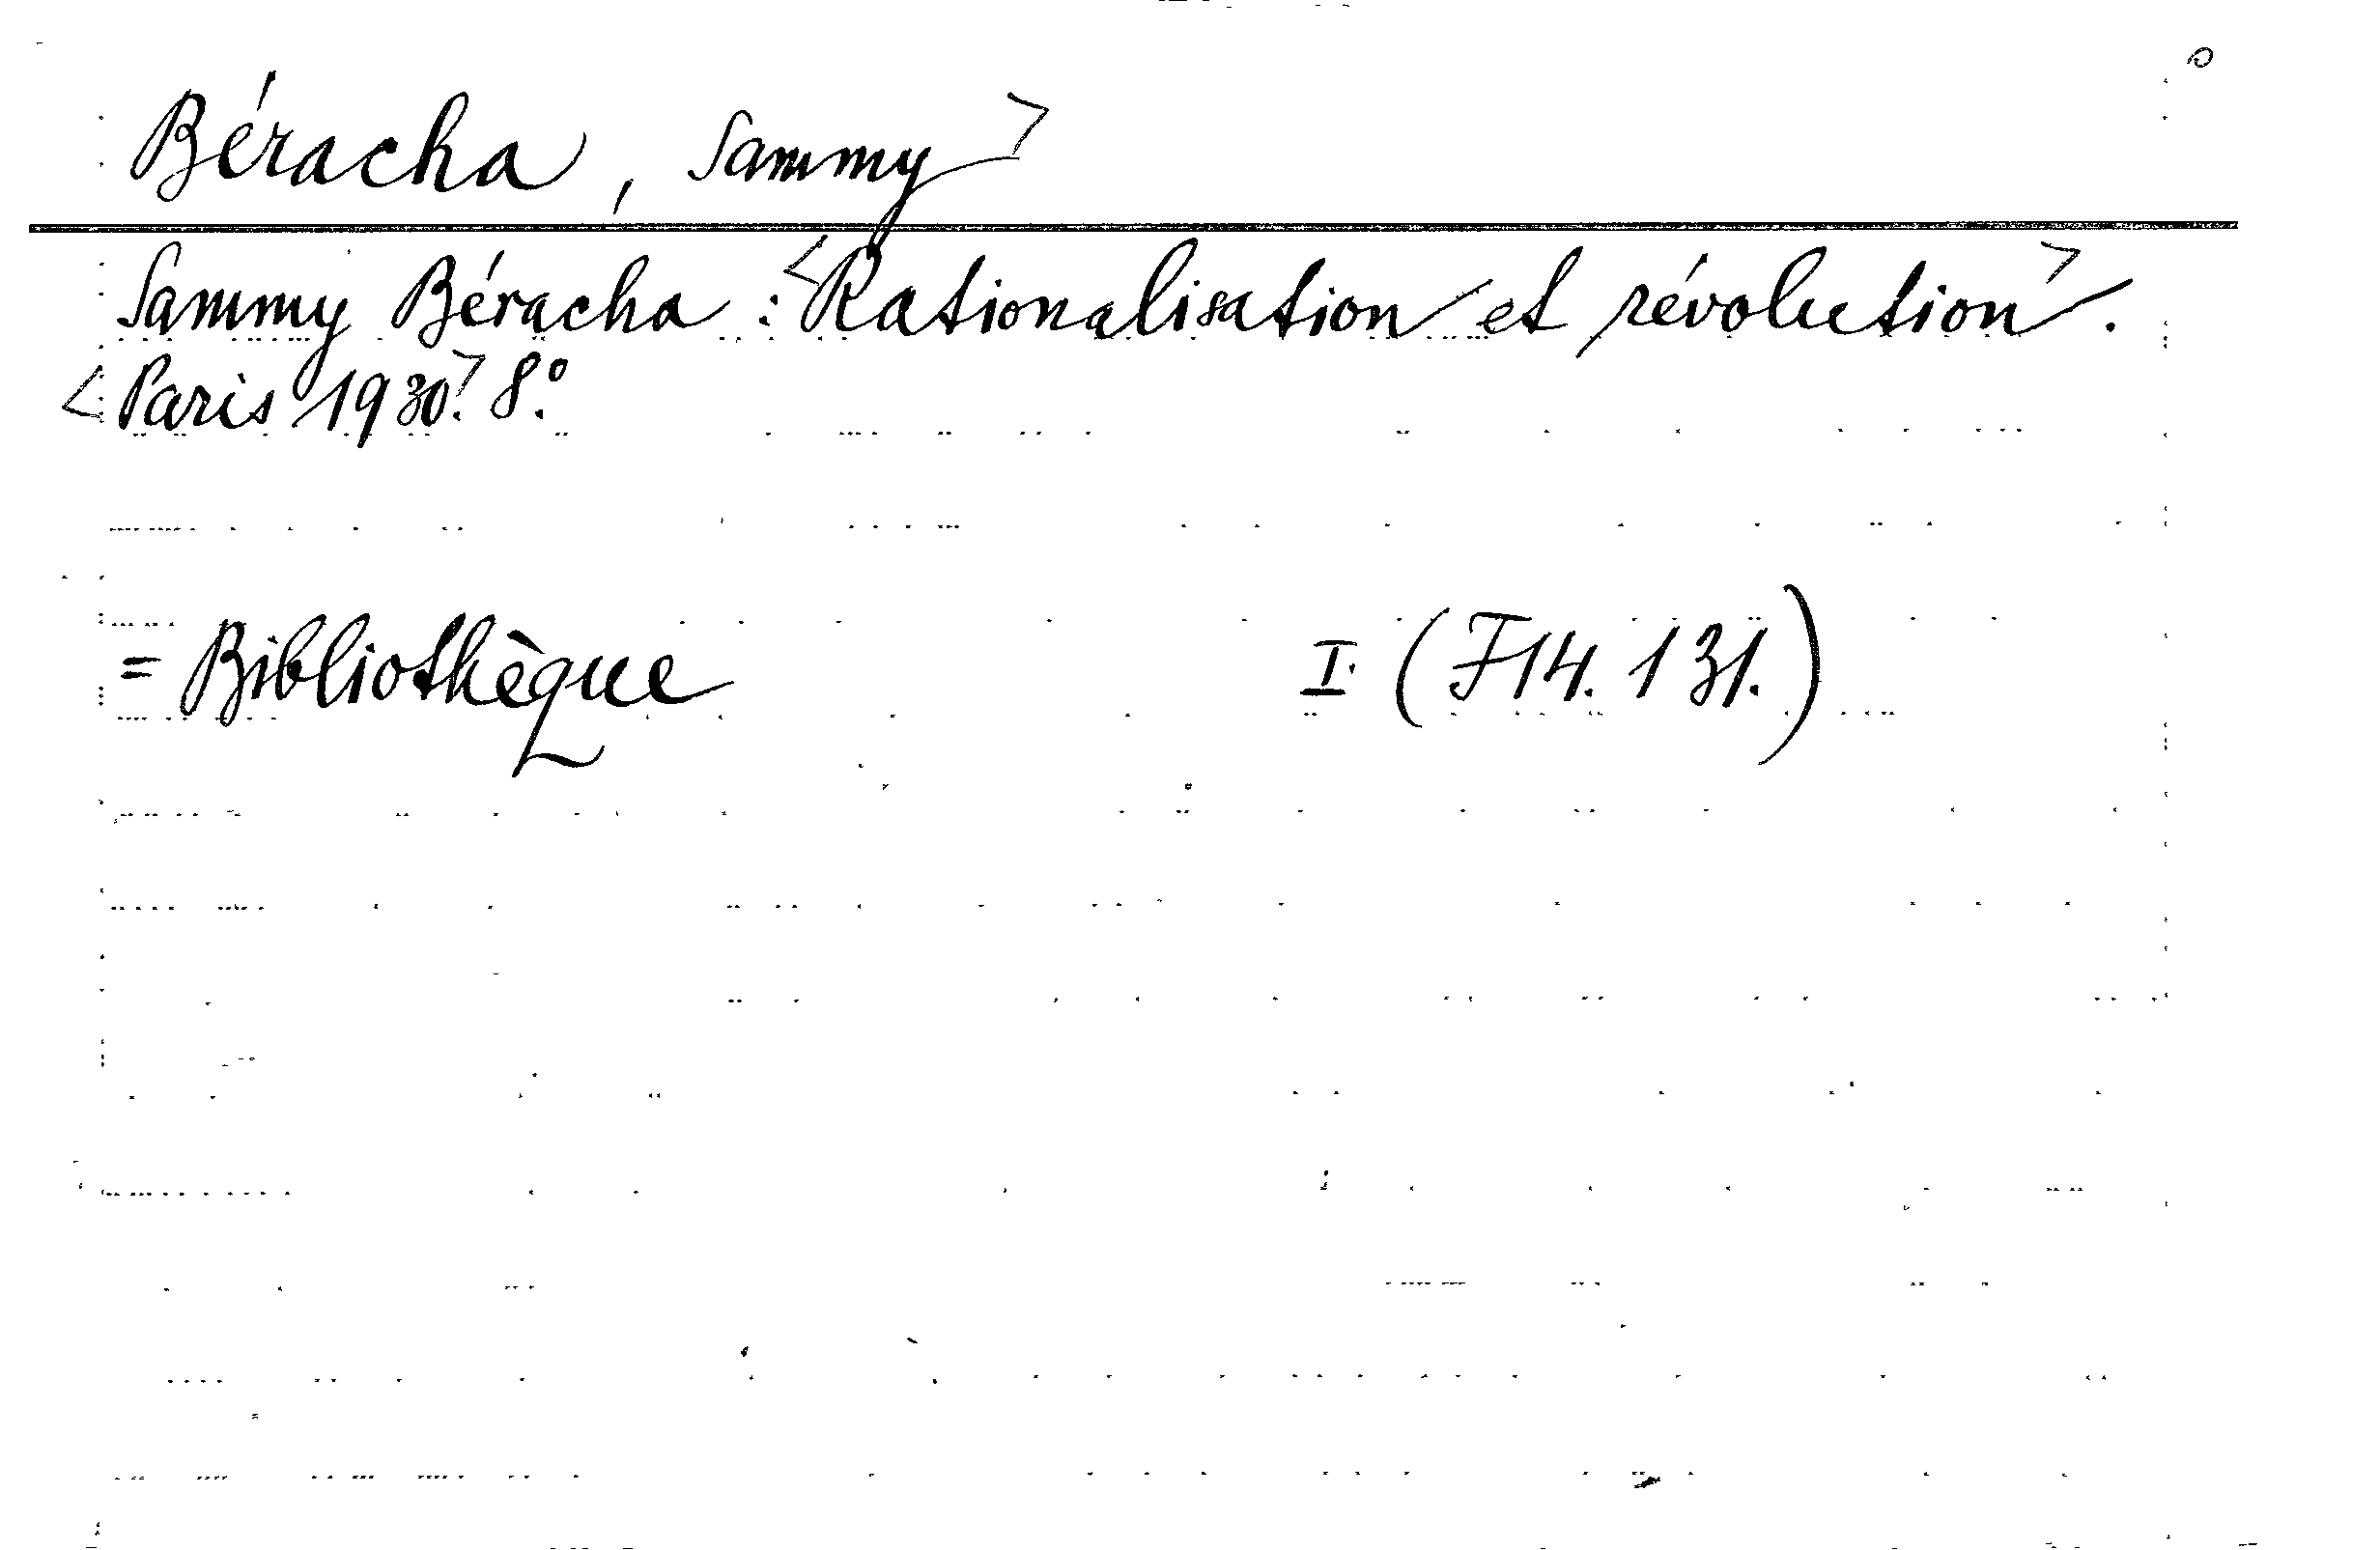 Béracha, Sammy>
Sammy Béracha : <Rationalisation et révolution>.
<Paris 1930>. 8°.
= Bibliothèque I (F14. 131.)